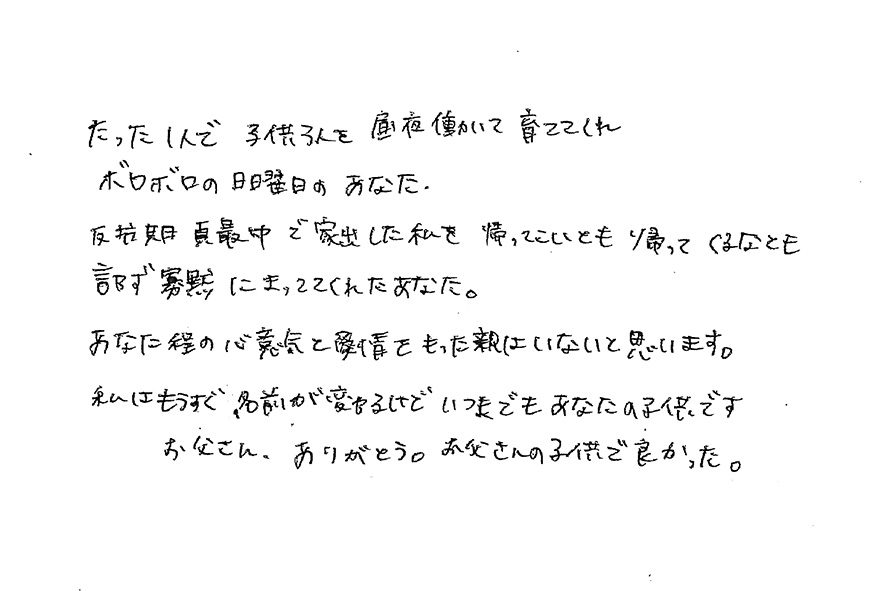 たった1人で 子供3人を 昼夜働いて 育ててくれ
ボロボロの日曜日の あなた.
反抗期真最中で家出した私を 帰ってこいとも 帰ってくるなとも
言わず寡黙にまっててくれたあなた。
あなた程の心意気と愛情をもった親はいないと思います。
私はもうすぐ名前が変わるけど いつまでもあなたの子供です
お父さん、ありがとう。お父さんの子供で良かった。